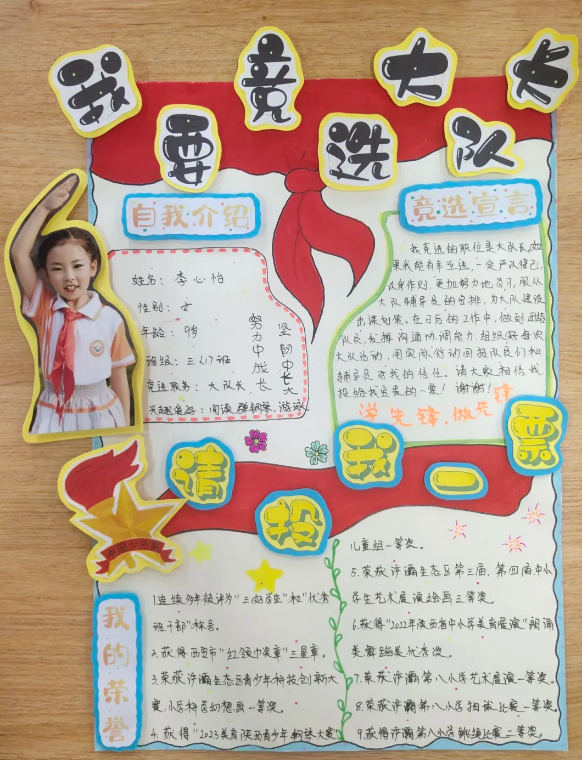 我要竞选大队长
自我介绍
姓名：李心怡
性别：女
年龄：9岁
班级：三(1)班
竞选职务：大队长
兴趣爱好：阅读、弹钢琴、游泳
努力中成长
坚韧中长大
竞选宣言
我竞选的职位是大队长。如
果我能有幸当选，一定严以律己，
以身作则，更加努力地学习，服从
大队辅导员的安排，为大队建设
出谋划策。在日后的工作中，做到团结
队友，发挥沟通协调能力，组织好每次
大队活动，用实际行动回报队员们和
辅导员对我的信任。请大家相信我
投给我宝贵的一票！谢谢！
学先锋，做先锋
请投我一票
中国少先队
我的荣誉
1.连续多年被评为“三好学生”和“优秀
班干部”称号。
2.获得西安市“红领巾奖章”三星章。
3.荣获浐灞生态区青少年科技创新大
赛，小学科学幻想画一等奖。
4.获得“2023美育陕西青少年钢琴大赛”
儿童组一等奖。
5.荣获浐灞生态区第三届、第四届中小
学生艺术展演绘画三等奖。
6.获得“2022年陕西省中小学美育展演”朗诵
类舞蹈类优秀奖。
7.荣获浐灞第八小学艺术展演一等奖。
8.荣获浐灞第八小学
比赛一等奖。
9.获得浐灞第八小学
比赛二等奖。